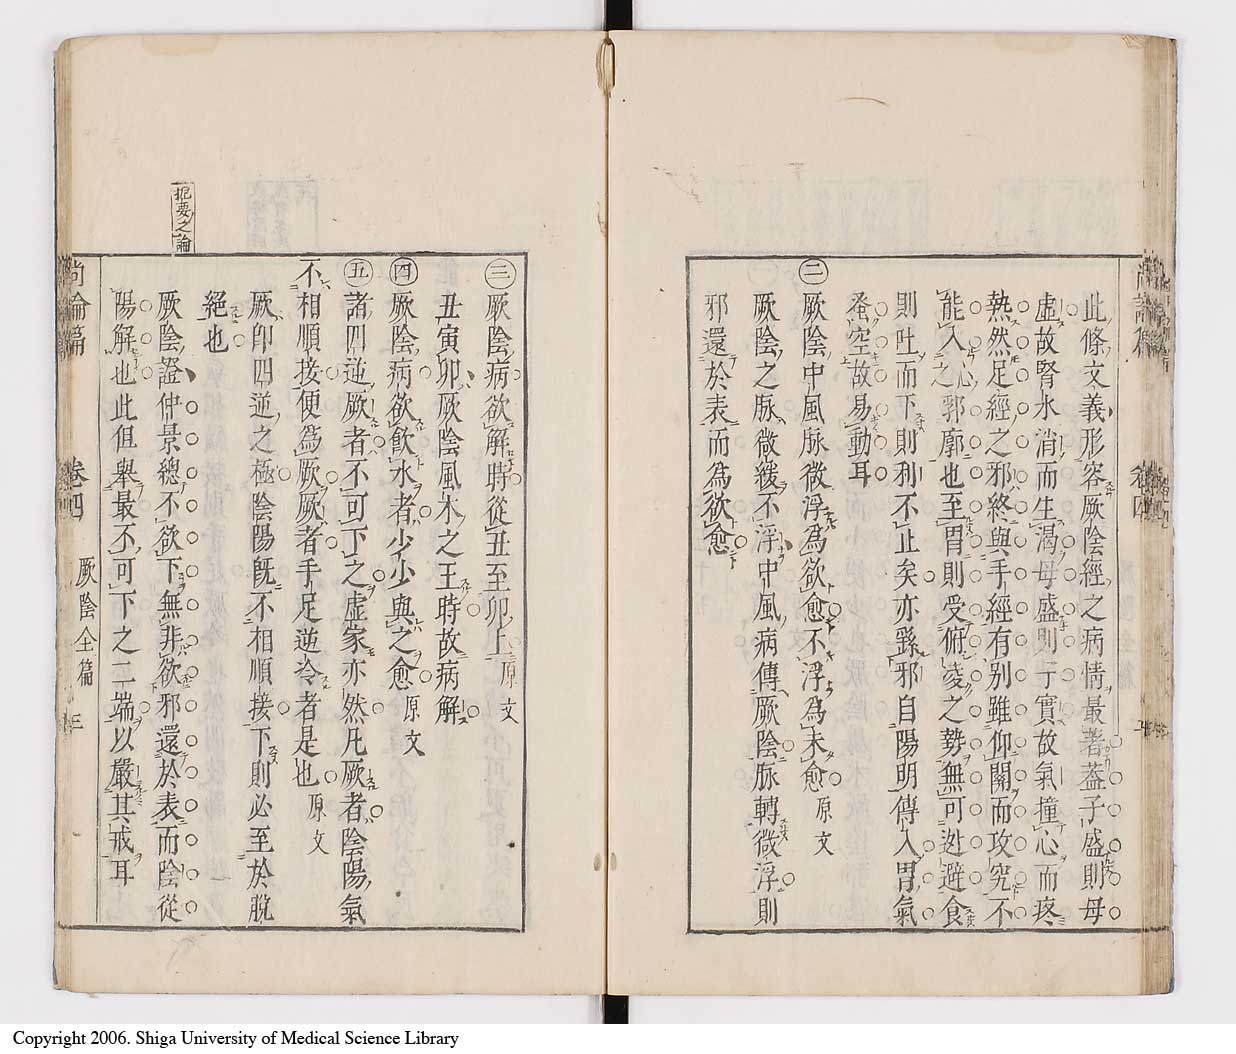 此條文義形容厥陰經之病情最著蓋子盛則母
虛故腎水消而生渴母盛則子實故氣撞心而疼
熱然足經之邪終與手經有別雖仰關而攻究不
能入心之郭廓也至胃則受俯凌之勢無可迯避食
則吐而下則利不止矣亦繇邪自陽明傳入胃氣
蚤空故易動耳
㊁厥陰中風脉微浮為欲愈不浮為未愈原文
厥陰之脉微緩不浮中風病傳厥陰脉轉微浮則
邪還於表而為欲愈
㊂厥陰病欲解時從丑至卯上原文
丑寅卯厥陰風木之王時故病解
㊃厥陰病欲飲水者少少與之愈原文
㊄諸四逆厥者不可下之虛家亦然凡厥者陰陽氣
不相順接便為厥厥者手足逆冷者是也原文
厥卽四逆之極陰陽旣不相順接下則必至於脫
絕也
厥陰證仲景總不欲下無非欲邪還於表而陰從
陽解也此但舉最不可下之二端以嚴其戒耳
扼要之論
尚論篇 卷四 厥陰全篇 三
Copyright 2006. Shiga University of Medical Science Library